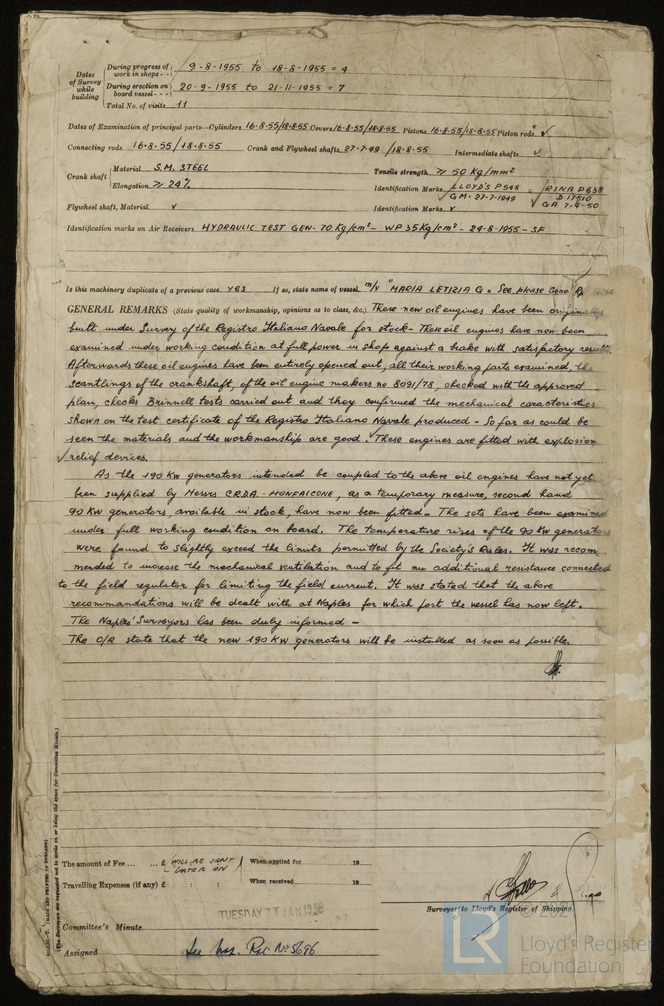 Dates of Survey while building
During progress of work in shops - - 9-8-1955 to 18-8-1955 = 4
During erection on board vessel - - - 20-9-1955 to 21-11-1955 = 7
Total No. of visits 11
Dates of Examination of principal parts—Cylinders 16-8-55/18-8-55 Covers 16-8-55/18-8-55 Pistons 16-8-55/18-8-55 Piston rods ✓
Connecting rods 16-8-55/18-8-55 Crank and Flywheel shafts 27-7-49/18-8-55 Intermediate shafts ✓
Crank shaft Material S.M. STEEL Tensile strength ⩾ 50 Kg/mm²
Elongation ⩾ 24% Identification Marks LLOYD'S P548 = RINA P638
GM = 27-7-1949 D 17510
Flywheel shaft, Material ✓ Identification Marks ✓ GA 7-4-50
Identification marks on Air Receivers HYDRAULIC TEST GEN- 70 Kg/cm² - WP 35 Kg/cm² - 24-8-1955 - SF
Is this machinery duplicate of a previous case YES If so, state name of vessel m/v "MARIA LETIZIA G" See, please Genoa Rp
GENERAL REMARKS (State quality of workmanship, opinions as to class, &c.) These new oil engines have been originally
built under Survey of the Registro Italiano Navale for stock - These oil engines have now been
examined under working condition at full power in shop against a brake with satisfactory results
Afterwards these oil engines have been entirely opened out, all their working parts examined, the
scantlings of the crankshaft, of the oil engine makers no 8091/78, checked with the approved
plan, checks Brinnell tests carried out and they confirmed the mechanical caracteristics
shown on the test certificate of the Registro Italiano Navale produced - So far as could be
seen the materials and the workmanship are good. These engines are fitted with explosion
✓ relief devices.
As the 190 KW generators intended be coupled to the above oil engines have not yet
been supplied by Messrs C.R.D.A. - MONFALCONE, as a temporary measure, second hand
90 KW generators, available in stock, have now been fitted - The sets have been examined
under full working condition on board. The temperature rises of the 90 KW generators
were found to slightly exceed the limits permitted by the Society's Rules. It was recom
mended to increase the mechanical ventilation and to fit an additional resistance connected
to the field regulator for limiting the field current. It was stated that the above
recommandations will be dealt with at Naples for which port the vessel has now left.
The Naples' Surveyors has been duly informed -
The O/R state that the new 190 KW generators will be installed as soon as possible.
The amount of Fee ... ... £ WILL BE SENT LATER ON When applied for 19
Travelling Expenses (if any) £ : : When received 19
Surveyor to Lloyd's Register of Shipping.
TUESDAY JAN
Committee's Minute
Assigned See Rpt. No 5696
(The Surveyors are requested not to write on or below the space for Committee Minute.)
LR
Lloyd's Register
Foundation